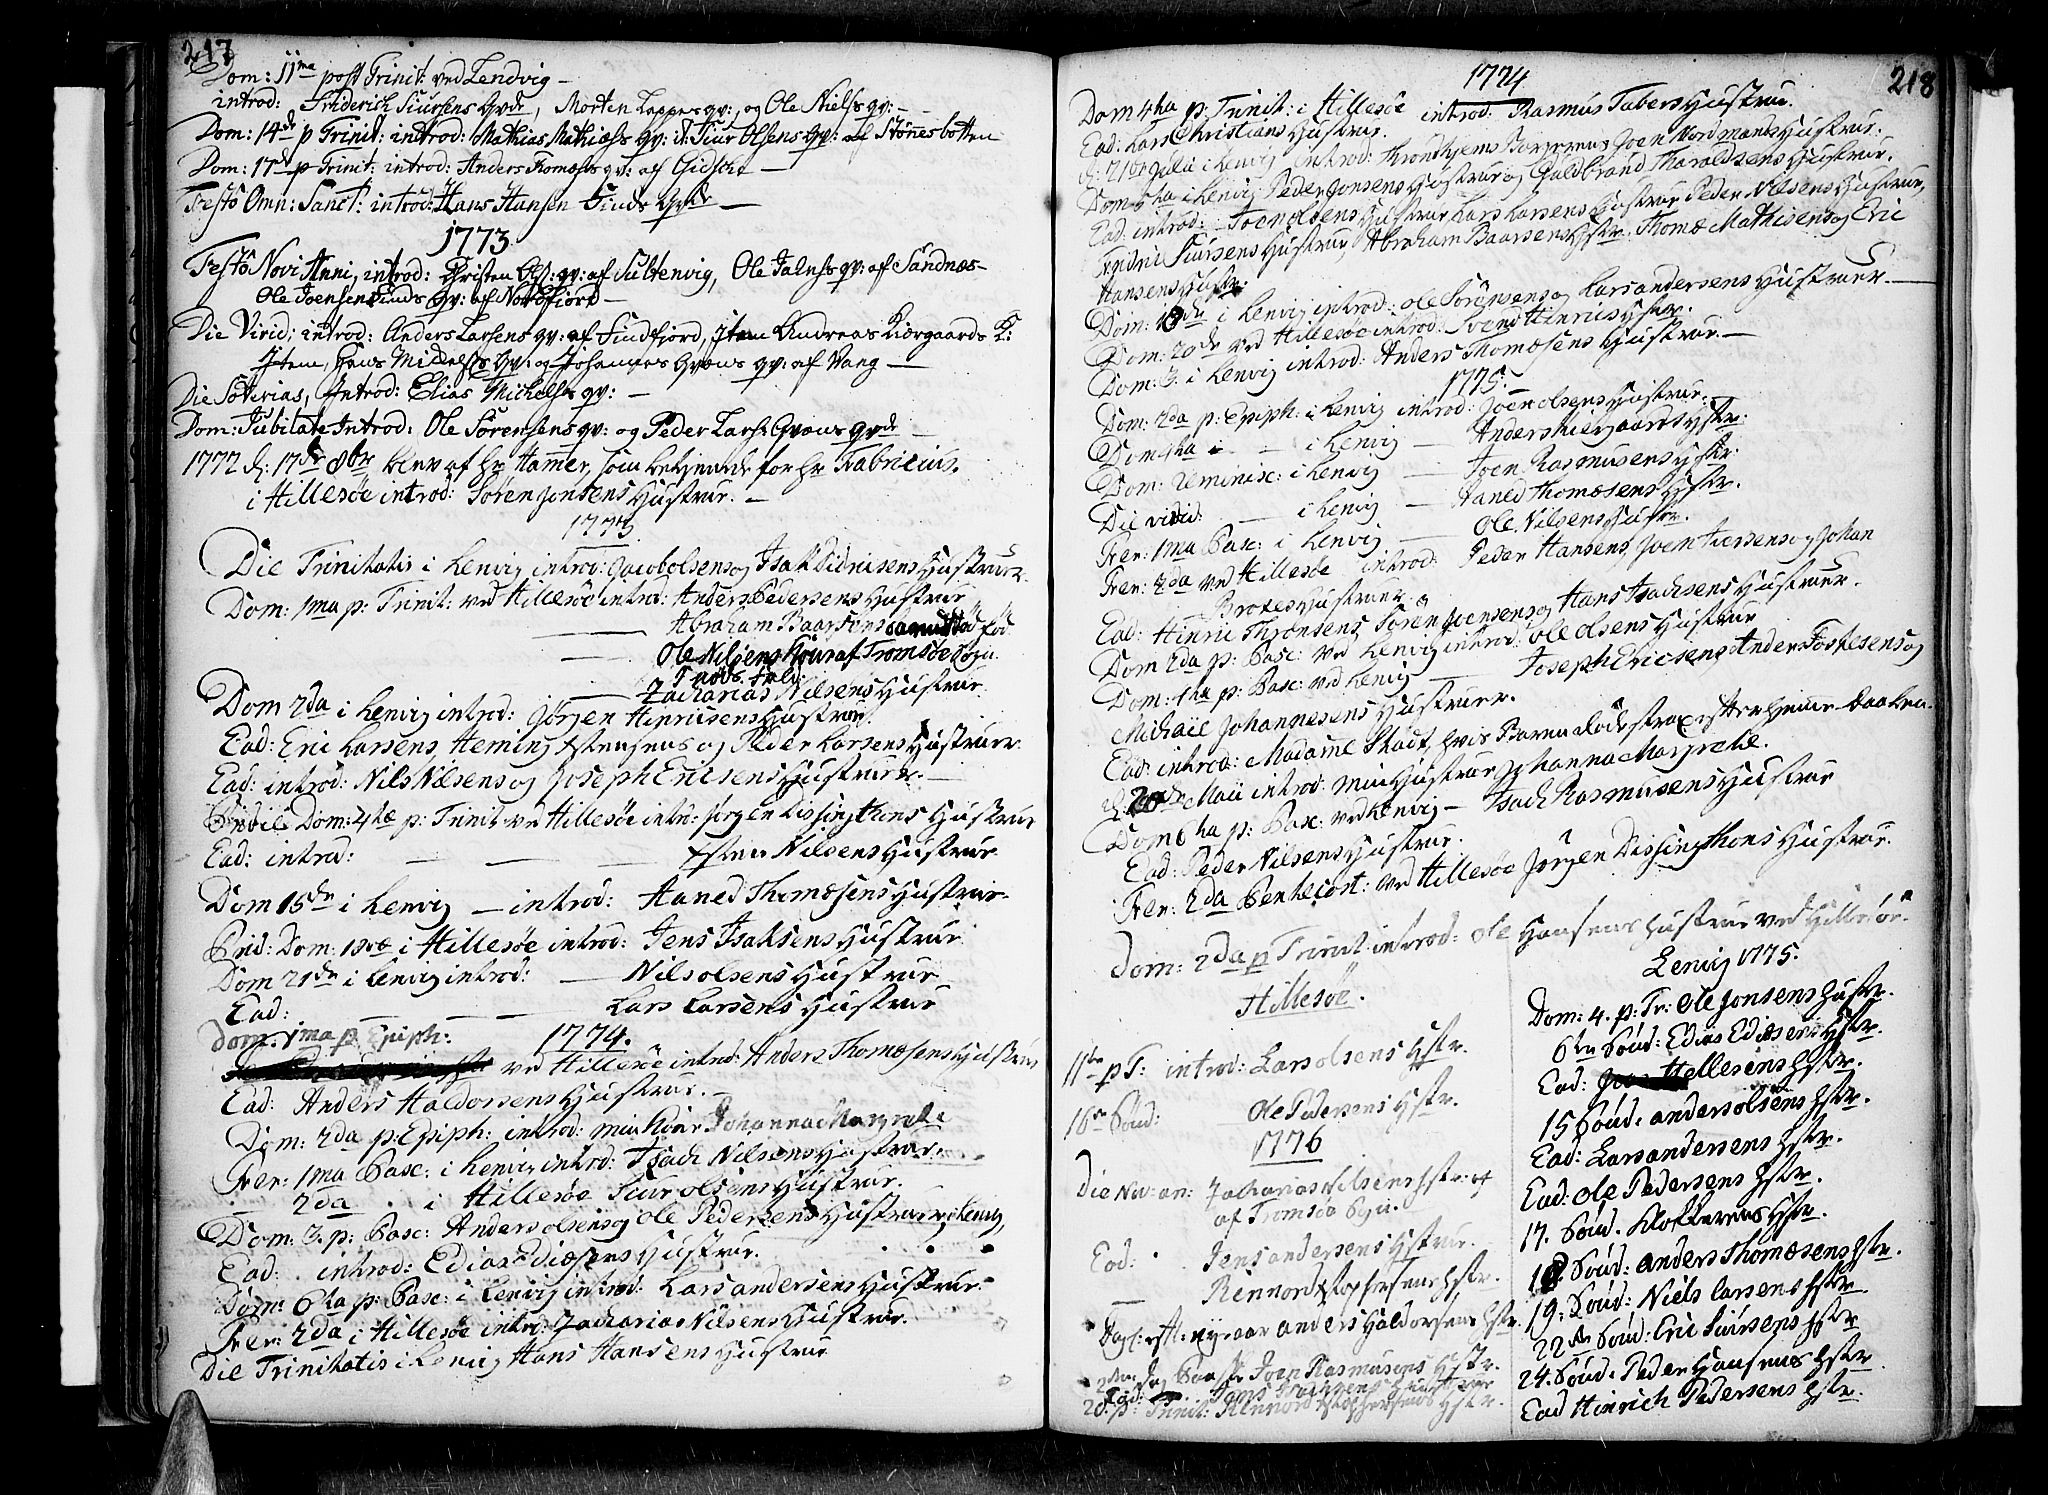 217
Dom: 11ma post Trinit: ved Lendvig —
introd: Friderich Siursens Qvde, Morten Lappes qv:, og Ole Niels: qv: —
Dom: 14de p Trinit: introd: Mathias Mathiæss: qv: it: Siur Olsens qv: af Stønesbotten
Dom: 17de p Trinit: introd: Anders Thomæs: qv: af Gidsche —
Festo Omn: Sanct: introd: Hans Hansen Finds Qvde —
1773
Festo Novi Anni, introd: Christen Ols: qv: af Sultenvig, Ole Jalns: qv: af Sandnæs —
Ole Joensen Finds qv: af Nordfiord —
Die Virid; introd: Anders Larsens qv: af Findfiord, Item Andreas Kiergaards K:
Item, Hans Mickels: qv: og Johannes Qvæns qv: af Vang —
Die Soterias, Introd: Elias Michels: qv: —
Dom: Jubilate Introd: Ole Sørensens qv: og Peder Lars: Qvæns qvde —
1772 d: 17de 8br blev af hr Hammer, som betjente for hr Fabricius.
i Hillesøe introd: Søren Jonsens Hustrue. —
1773
Die Trinitatis i Lenvig introd: Jacob olsens og Isak Didriksens Hustruer
Dom: 1ma p: Trinit: ved Hillesøe introd: Anders Pedersens Hustrue
— Abraham Baarsens
— Ole Nilsens Kone af Tromsøe Sogn
— Zacharias Nilsens Hustrue
Dom 2da i Lenvig introd: Jørgen Hinricsens Hustrue.
Ead: Eric Larsens, Heming Estensens og Peder Larsens Hustruer.
Ead: introd: Nils Nilsens og Joseph Ericsens Hustruer. —
Prid: Dom: 4tæ p: Trinit: ved Hillesøe intr: Jørgen Dissingthons Hustrue
Ead: introd: — — — Esten Nilsens Hustrue
Dom 15de i Lenvig — introd: Haned Thomæsens Hustrue.
Prid: Dom: i Hillesøe introd: Jens Isaksens Hustrue
Dom 21de i Lenvig introd: — Nils olsens Hustrue
Ead: — — — Lars Larsens Hustrue
Dom. 1ma p. Epiph: 1774.
ved Hillesøe introd: Anders Thomæsens Hustrue
Ead: Anders Haldorsens Hustrue. —
Dom: 2da p: Epiph: introd: min Kone Johanna Margrete
Fer: 1ma Pasc: i Lenvig introd: Isach Nilsens Hustrue.
— 2da . i Hillesøe Siur olsens Hustrue.
Dom: 3. p: Pasc: Anders olsens og Ole Pedersens Hustruer i Lenvig,
Ead: . introd: Edias Ediæsens Hustrue.
Dom: 6ta p: Pasc: i Lenvig introd: Lars andersens Hustrue.
Fer: 2da i Hillesøe introd: Zacharias Nilsens Hustrue.
Die Trinitatis i Lenvig Hans Hansens Hustrue
218
1774
Dom 4ta p: Trinit: i Hillesøe introd: Rasmus Tabers Hustrue.
Ead: Lars Christians Hustrue.
d: 21de Julii i Lenvig introd: Tronhjems Borgerens Joen Nordmands Hustrue.
Dom i Lenvig Peder Jonsens Hustrue og Guldbrand Tharaldsens Hustrue.
Ead. introd: — Joen olsens Hustrue Lars Larsens Hustrue Peder Nilsens Hustrue,
Fridric Siursens Hustrue, Abraham Baarsens Hstr. Thomæ Mathisens og Eric
Hansens Hustr:
Dom: 18de i Lenvig introd: Ole Sørensens og Lars andersens Hustruer. —
Dom: 20de ved Hillesøe introd: Svend Hinrics Hstr.
Dom: 3. i Lenvig introd: Anders Thomæsens Hustrue. —
1775.
Dom: 2da p: Epiph: i Lenvig introd: Joen olsens Hustrue.
Dom 4ta — i Lenvig — Anders Kiergaards Hstr:
Dom: Reminisc: i Lenvig — Joen Rasmusens Hstr:
Die virid: — i Lenvig — Haned Thomæsens Hstr.
Fer: 1ma Pasc: i Lenvig — Ole Nilsens Hustr.
Fer: 2da ved Hillesøe introd: Peder Hansens, Joen Iversens og Johan
Brokes Hustruer.
Ead: Hinric Thronsens, Søren Joensens og Hans Isachsens Hustruer.
Dom 2da p: Pasc: ved Lenvig introd: Ole Olsens Hustrue
Dom: 4ta p: Pasc: ved Lenvig — Joseph Ericsens Ander Foskesens og
Michael Johannesens Hustruer.
Ead: introd: Madame Stadt, hvis Barn døde strax efter Hiemme-Daaben.
d: 20de Maii introd: min Hustrue Johanna Margrete.
Dom 6ta p: Pasc: ved Lenvig — Isach Rasmusens Hustrue
Ead: Peder Nilsens Hustrue.
Fer: 2da Pentecost: ved Hillesøe Jørgen Dissingthons Hustrue.
Dom: 2da p Trinit: introd: Ole Hansens Hustrue ved Hillesøe.
Hillesøe.
11te p T: introd: Lars olsens Hstr.
16de Sønd: Ole Pedersens Hstr.
1776
Die Nov: an: Zacharias Nilsens Hstr: af
af Tromsøe Sgn.
Ead: . Jens andersens Hstrue.
— Rennord Stophersens Hstr.
Dag: eft: nyeaar anders Haldorsens Hstr.
2den dag Paaske Joen Rasmusens Hstr.
Ead: — Jens Isachsens Hustrue
2d. p: Trinit: Rennord Stophersens Hstr.
Lenvig 1775.
Dom: 4. p: Tr: Ole Jonsens Hustr.
6te Sønd: Edias Ediæsens Hstr.
Ead: Hellesens Hstr.
15 Sønd: anders olsens Hstr.
Ead: Lars andersens Hstr.
Ead: Ole Pedersens Hstr.
17. Sønd. Klokkerens Hstr.
18 Sønd: anders Thomæsens Hstr.
19: Sønd: Niels Larsens Hstr
22de Sønd: Eric Siursens Hstr
24. Sønd: Peder Hansens Hstr
Ead Hinrich Pedersens Hstr.